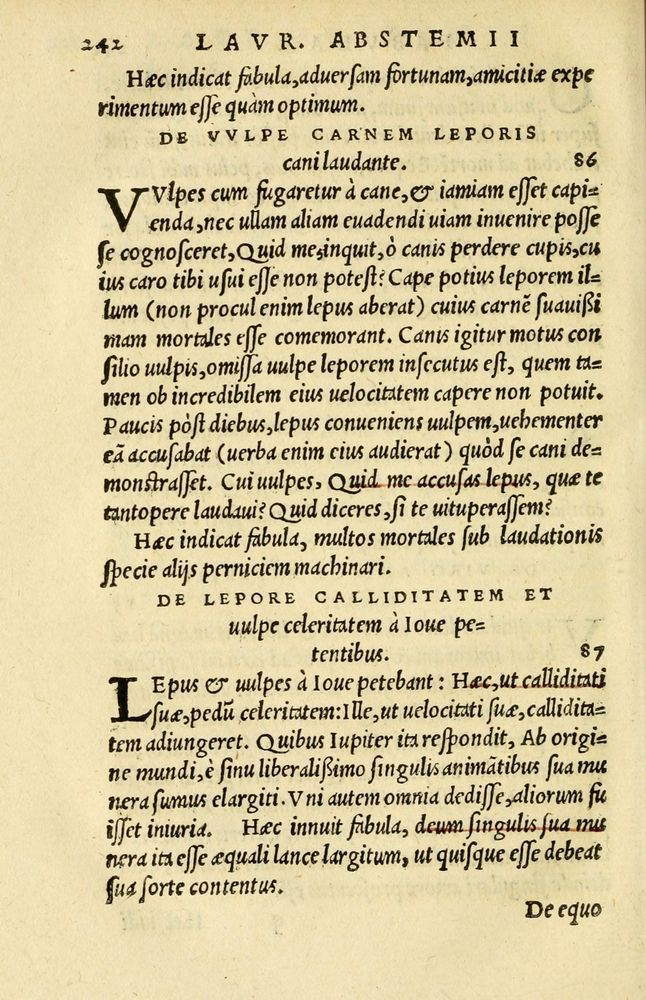 242 LAVR. ABSTEMII
Hæc indicat fabula, aduersam fortunam, amicitiæ expe
rimentum esse quàm optimum.
DE VVLPE CARNEM LEPORIS
cani laudante. 86
VVlpes cum fugaretur à cane, & iamiam esset capi-
enda, nec ullam aliam euadendi uiam inuenire posse
se cognosceret, Quid me, inquit, ô canis perdere cupis, cu
ius caro tibi usui esse non potest? Cape potius leporem il-
lum (non procul enim lepus aberat) cuius carnẽ suauißi
mam mortales esse comemorant. Canis igitur motus con
silio uulpis, omissa uulpe leporem insecutus est, quem ta-
men ob incredibilem eius uelocitatem capere non potuit.
Paucis pòst diebus, lepus conueniens uulpem, uehementer
eã accusabat (uerba enim eius audierat) quòd se cani de-
monstrasset. Cui uulpes, Quid me accusas lepus, quæ te
tantopere laudaui? Quid diceres, si te uituperassem?
Hæc indicat fabula, multos mortales sub laudationis
specie alijs perniciem machinari.
DE LEPORE CALLIDITATEM ET
uulpe celeritatem à Ioue pe-
tentibus. 87
LEpus & uulpes à Ioue petebant: Hæc, ut calliditati
suæ, pedũ celeritatem: Ille, ut uelocitati suæ, callidita-
tem adiungeret. Quibus Iupiter ita respondit, Ab origi-
ne mundi, è sinu liberalißimo singulis animãtibus sua mu
nera sumus elargiti. Vni autem omnia dedisse, aliorum fu
isset iniuria. Hæc innuit fabula, deum singulis sua mu
nera ita esse æquali lance largitum, ut quisque esse debeat
sua sorte contentus.
De equo